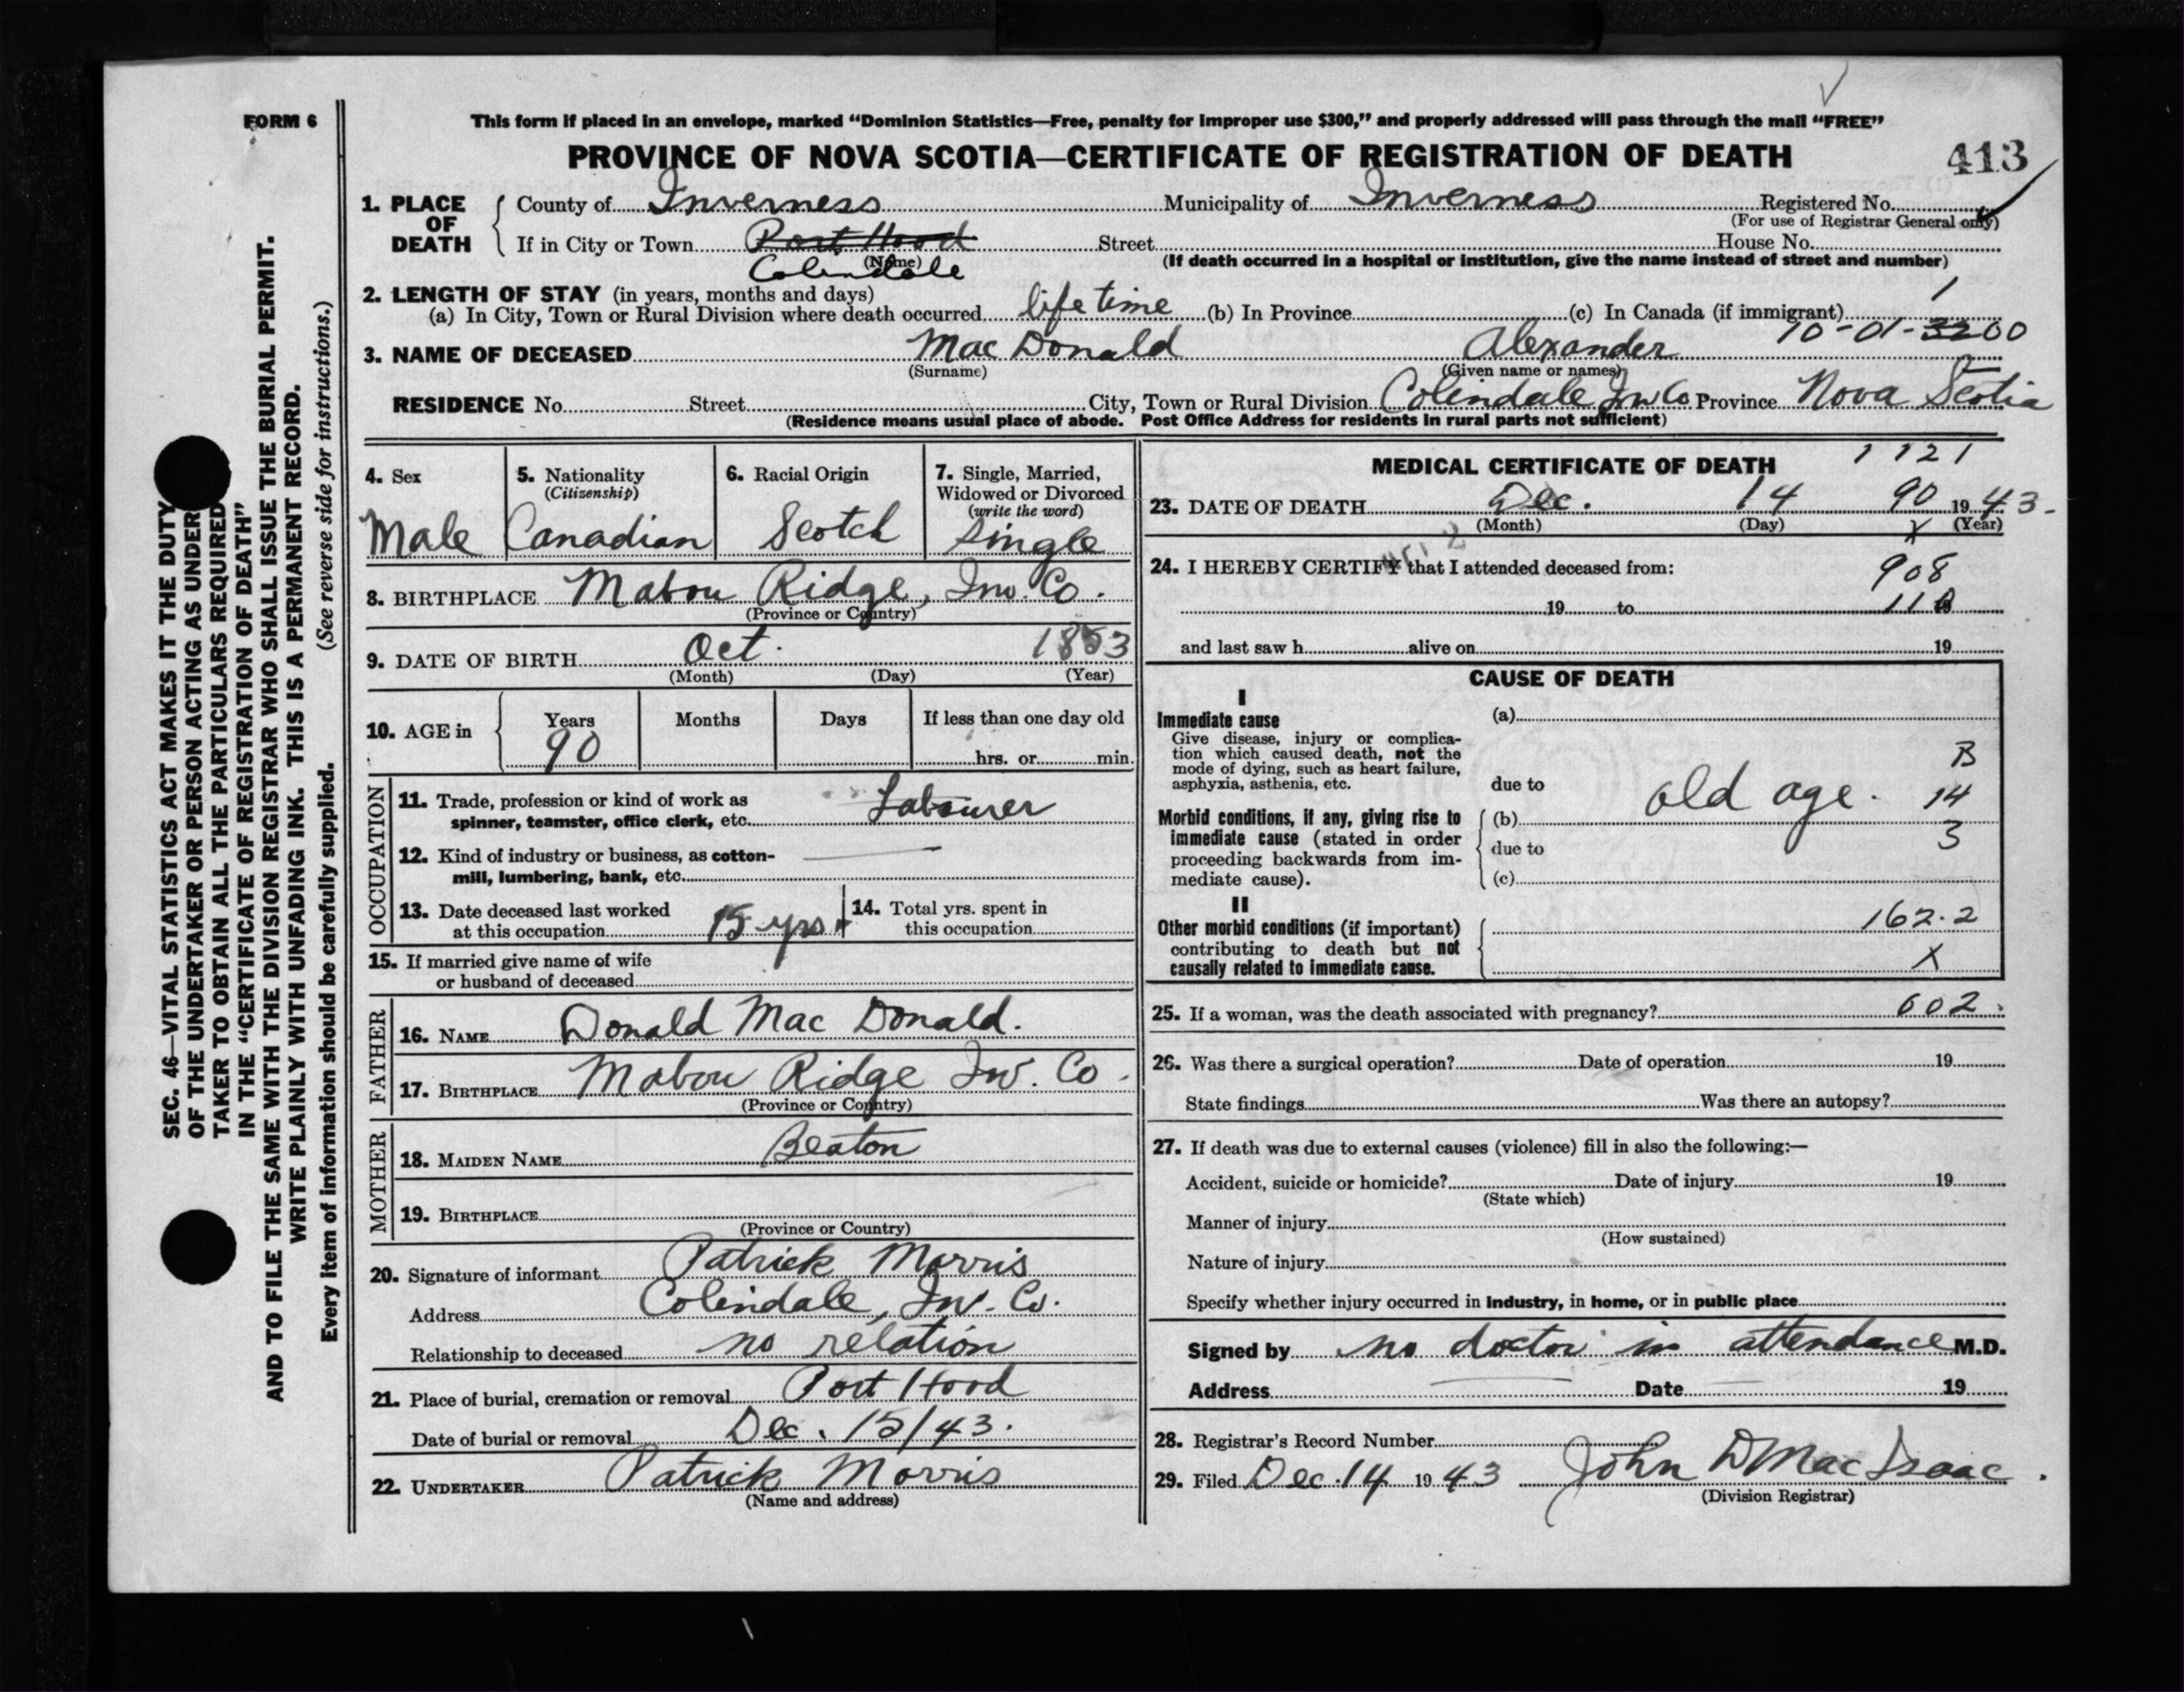 FORM 6
This form if placed in an envelope, marked “Dominion Statistics—Free, penalty for improper use $300,” and properly addressed will pass through the mail “FREE”
PROVINCE OF NOVA SCOTIA—CERTIFICATE OF REGISTRATION OF DEATH
413
1. PLACE OF DEATH
County of Inverness Municipality of Inverness Registered No.
(For use of Registrar General only)
If in City or Town Port Hood Street House No.
(Name) (If death occurred in a hospital or institution, give the name instead of street and number)
Colindale
2. LENGTH OF STAY (in years, months and days) 1
(a) In City, Town or Rural Division where death occurred life time (b) In Province (c) In Canada (if immigrant)
10-01-3200
3. NAME OF DECEASED Mac Donald Alexander
(Surname) (Given name or names)
RESIDENCE No. Street City, Town or Rural Division Colindale Inv Co Province Nova Scotia
(Residence means usual place of abode. Post Office Address for residents in rural parts not sufficient)
4. Sex
Male
5. Nationality
(Citizenship)
Canadian
6. Racial Origin
Scotch
7. Single, Married,
Widowed or Divorced
(write the word)
Single
8. BIRTHPLACE Mabou Ridge, Inv. Co.
(Province or Country)
9. DATE OF BIRTH Oct. 1853
(Month) (Day) (Year)
10. AGE in Years Months Days If less than one day old
90 hrs. or min.
OCCUPATION
11. Trade, profession or kind of work as
spinner, teamster, office clerk, etc. Labourer
12. Kind of industry or business, as cotton-
mill, lumbering, bank, etc.
13. Date deceased last worked
at this occupation 15 yrs
14. Total yrs. spent in
this occupation
15. If married give name of wife
or husband of deceased
FATHER
16. NAME Donald Mac Donald.
17. BIRTHPLACE Mabou Ridge Inv. Co.
(Province or Country)
MOTHER
18. MAIDEN NAME Beaton
19. BIRTHPLACE
(Province or Country)
20. Signature of informant Patrick Morris
Address Colindale, Inv. Co.
Relationship to deceased no relation
21. Place of burial, cremation or removal Port Hood
Date of burial or removal Dec. 15/43.
22. UNDERTAKER Patrick Morris
(Name and address)
MEDICAL CERTIFICATE OF DEATH 1121
23. DATE OF DEATH Dec. 14 90 1943.
(Month) (Day) X (Year)
24. I HEREBY CERTIFY that I attended deceased from:
908
19 to 19
and last saw h alive on 19
CAUSE OF DEATH
I
Immediate cause
Give disease, injury or complica-
tion which caused death, not the
mode of dying, such as heart failure,
asphyxia, asthenia, etc.
(a)
due to
old age.
B
14
3
Morbid conditions, if any, giving rise to
immediate cause (stated in order
proceeding backwards from im-
mediate cause).
(b)
due to
(c)
II
Other morbid conditions (if important)
contributing to death but not
causally related to immediate cause.
162.2
X
25. If a woman, was the death associated with pregnancy? 602.
26. Was there a surgical operation? Date of operation 19
State findings Was there an autopsy?
27. If death was due to external causes (violence) fill in also the following:—
Accident, suicide or homicide? Date of injury 19
(State which)
Manner of injury
(How sustained)
Nature of injury
Specify whether injury occurred in industry, in home, or in public place
Signed by no doctor in attendance M.D.
Address Date 19
28. Registrar's Record Number
29. Filed Dec. 14 1943 John D Mac Isaac.
(Division Registrar)
SEC. 46—VITAL STATISTICS ACT MAKES IT THE DUTY
OF THE UNDERTAKER OR PERSON ACTING AS UNDER
TAKER TO OBTAIN ALL THE PARTICULARS REQUIRED
IN THE “CERTIFICATE OF REGISTRATION OF DEATH”
AND TO FILE THE SAME WITH THE DIVISION REGISTRAR WHO SHALL ISSUE THE BURIAL PERMIT.
WRITE PLAINLY WITH UNFADING INK. THIS IS A PERMANENT RECORD.
Every item of information should be carefully supplied. (See reverse side for instructions.)